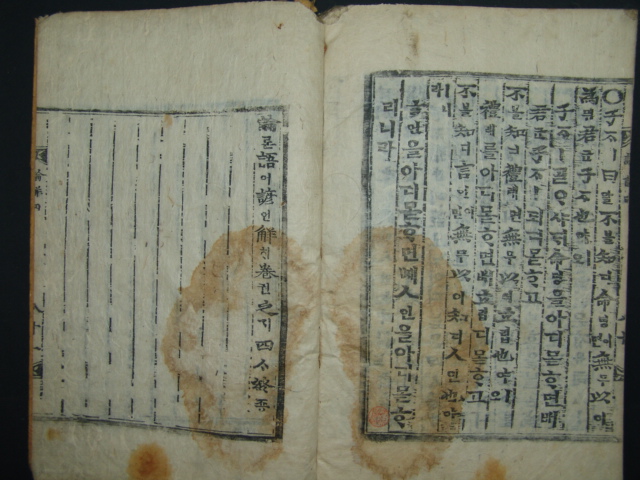 ○子ᄌᆞㅣ曰왈不블知디命명이면無무以이
爲위君군子ᄌᆞ也야ㅣ오
子ᄌᆞㅣᄀᆞᆯᄋᆞ샤ᄃᆡ命명을아디몯ᄒᆞ면ᄡᅥ
君군子ᄌᆞㅣ되디몯ᄒᆞ고
不블知디禮례면無무以이立립也야ㅣ오
禮례를아디몯ᄒᆞ면ᄡᅥ立립디몯ᄒᆞ고
不블知디言언이면無무以이知디人인也야
ㅣ니라
言언을아디몯ᄒᆞ면ᄡᅥ人인을아디몯ᄒᆞ
리니라
論론語어諺언解ᄒᆡ卷권之지四ᄉᆞ終죵